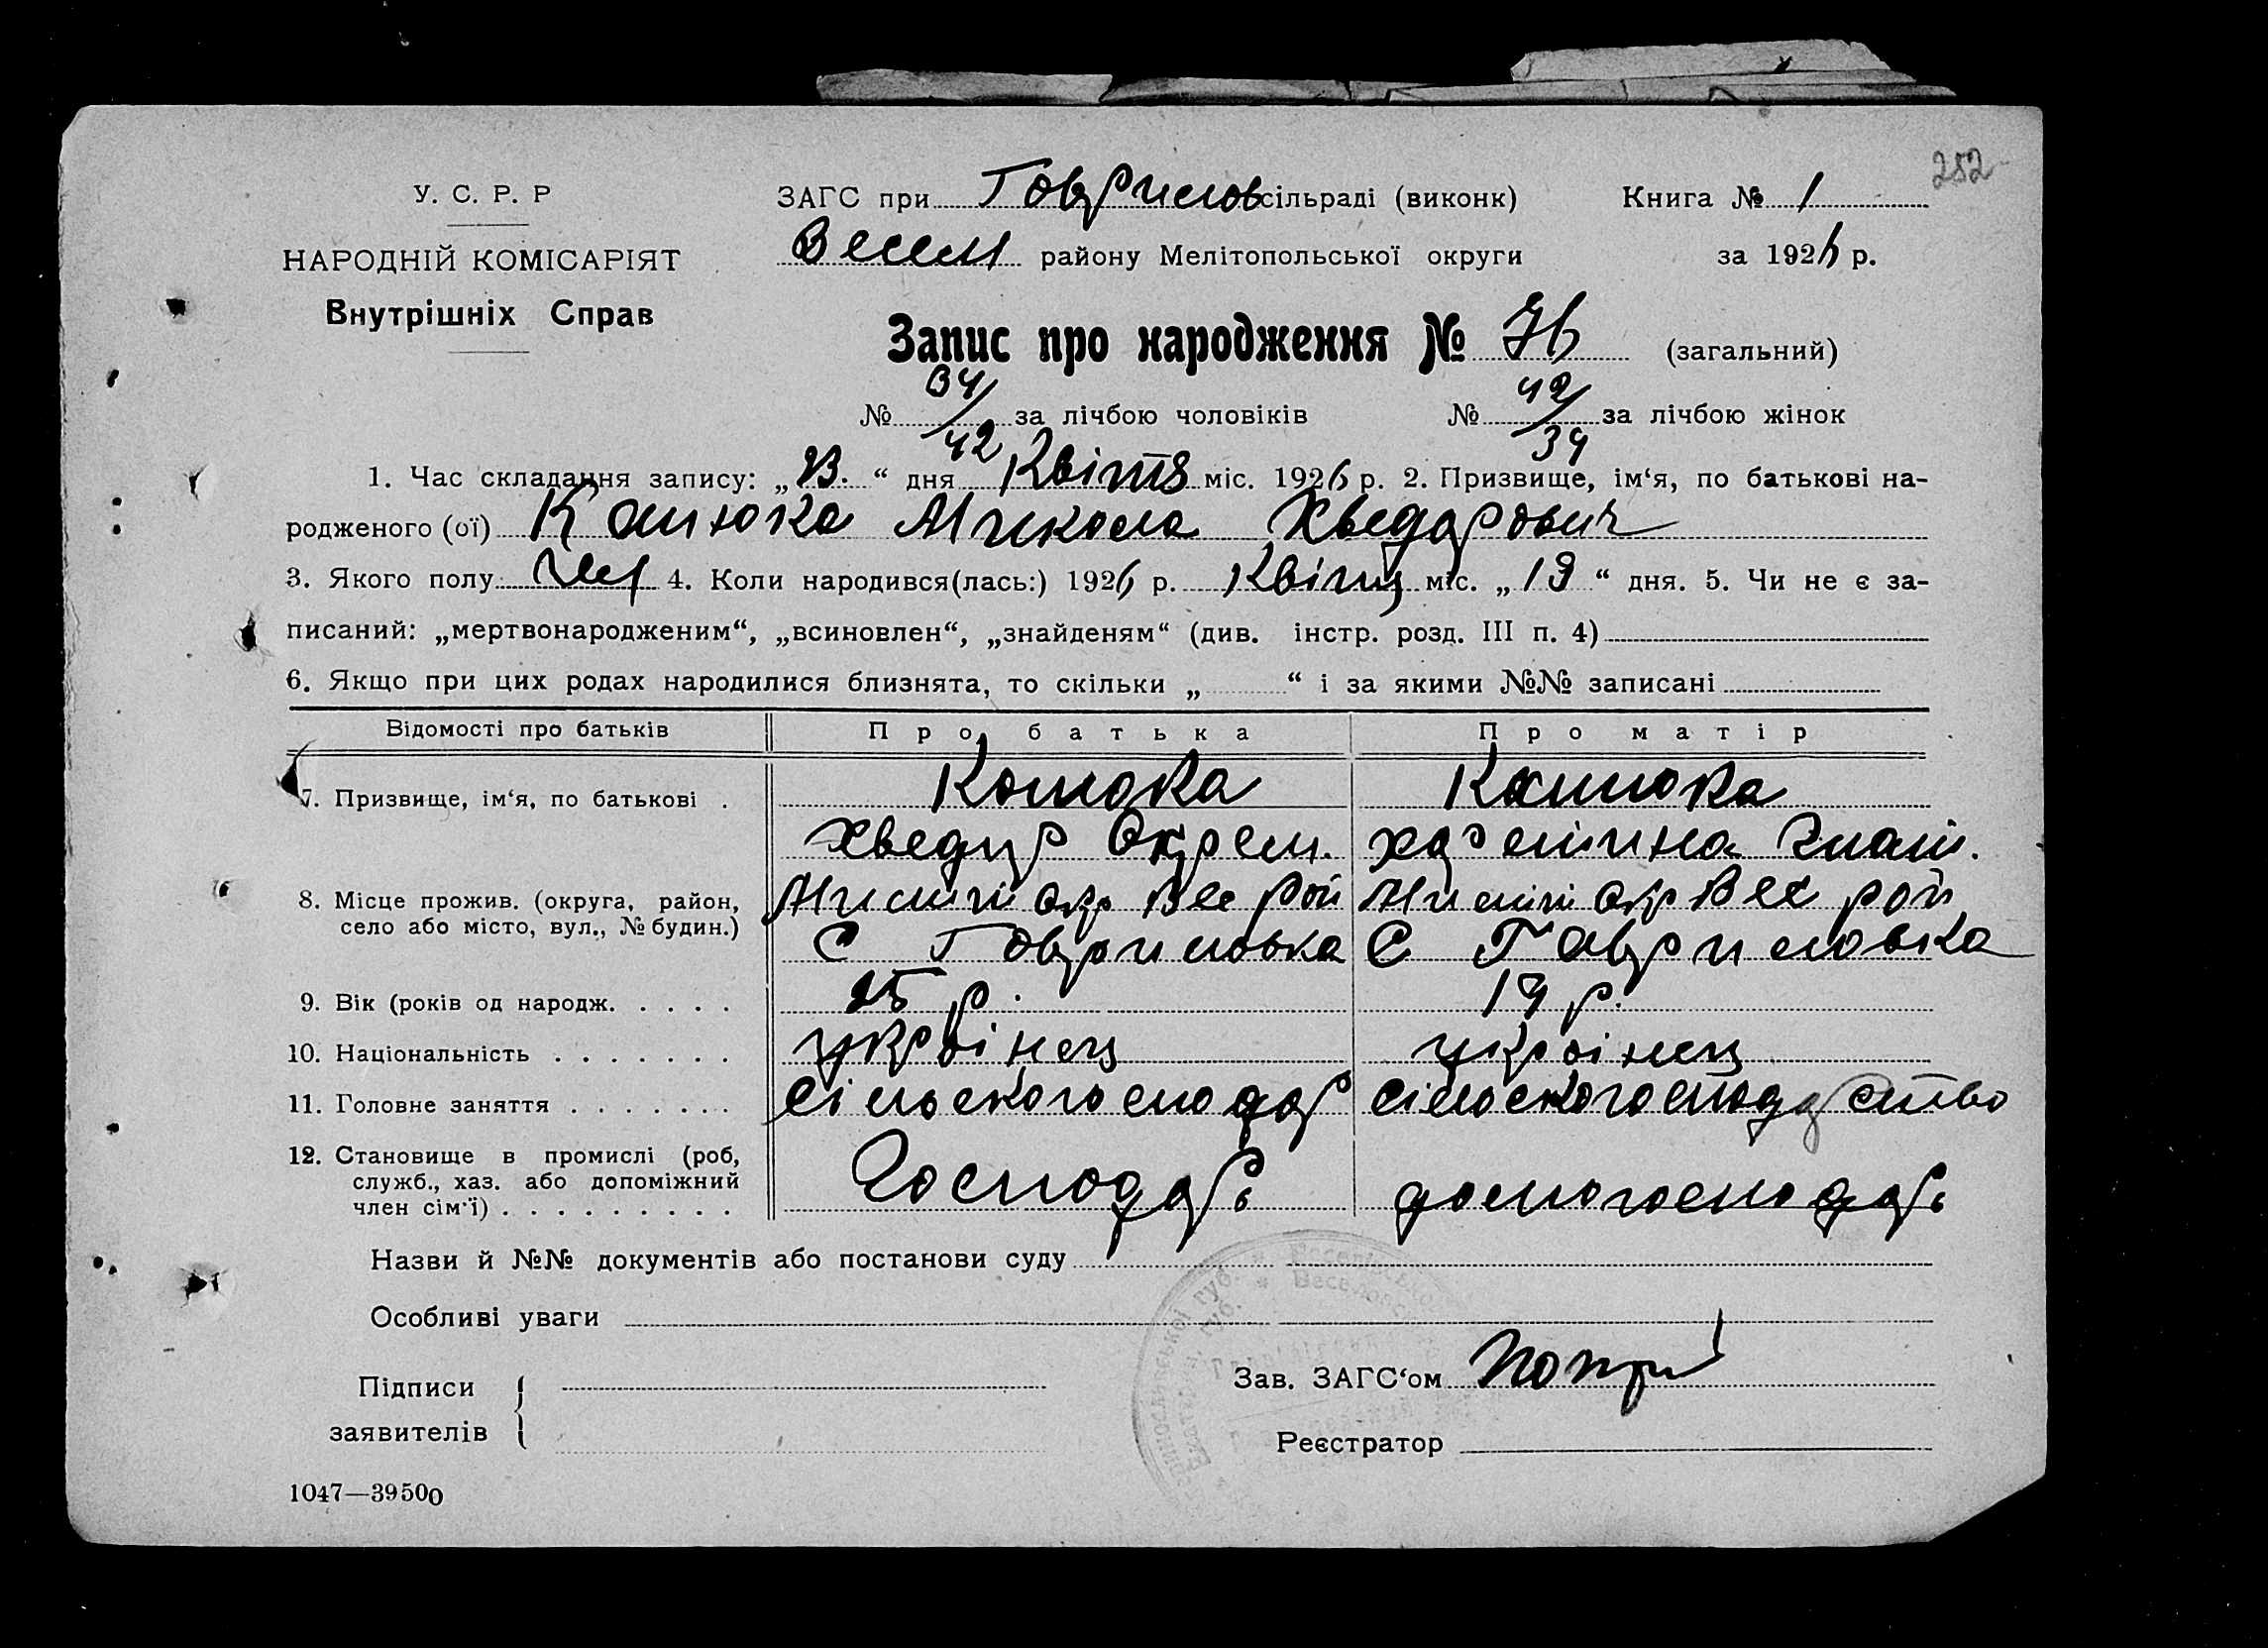 282
У. С. Р. Р
НАРОДНІЙ КОМІСАРІЯТ
Внутрішніх Справ
ЗАГС при Гаврилов сільраді (виконк)
Весел району Мелітопольської округи
Книга № 1
за 1926 р.
Запис про народження № 76 (загальний)
№ 34/42 за лічбою чоловіків № 42/34 за лічбою жінок
1. Час складання запису: „23.“ дня Квітня міс. 1926 р. 2. Призвище, ім‘я, по батькові на-
родженого (ої) Микола Хведорович
3. Якого полу 4. Коли народився(лась:) 1926 р. Квітц міс. „19“ дня. 5. Чи не є за-
писаний: „мертвонародженим“, „всиновлен“, „знайденям“ (див. інстр. розд. III п. 4)
6. Якщо при цих родах народилися близнята, то скільки „ “ і за якими №№ записані
Відомості про батьків Про батька Про матір
7. Призвище, ім‘я, по батькові .
Хведир Охрем.
8. Місце прожив. (округа, район,
село або місто, вул., № будин.)
окр Вес рой окр Вес рой
С Гавриловка С Гавриловка
9. Вік (років од народж. . . . . 25 р. 19 р.
10. Національність . . . . . . . українец українец
11. Головне заняття . . . . . . . сільскогосподар сільскогосподарство
12. Становище в промислі (роб,
служб., хаз. або допоміжний
член сім‘ї) . . . . . . . . . Господарь домогосподарь
Назви й №№ документів або постанови суду
Особливі уваги
Підписи
заявителів
Зав. ЗАГС‘ом
Реєстратор
1047—39500